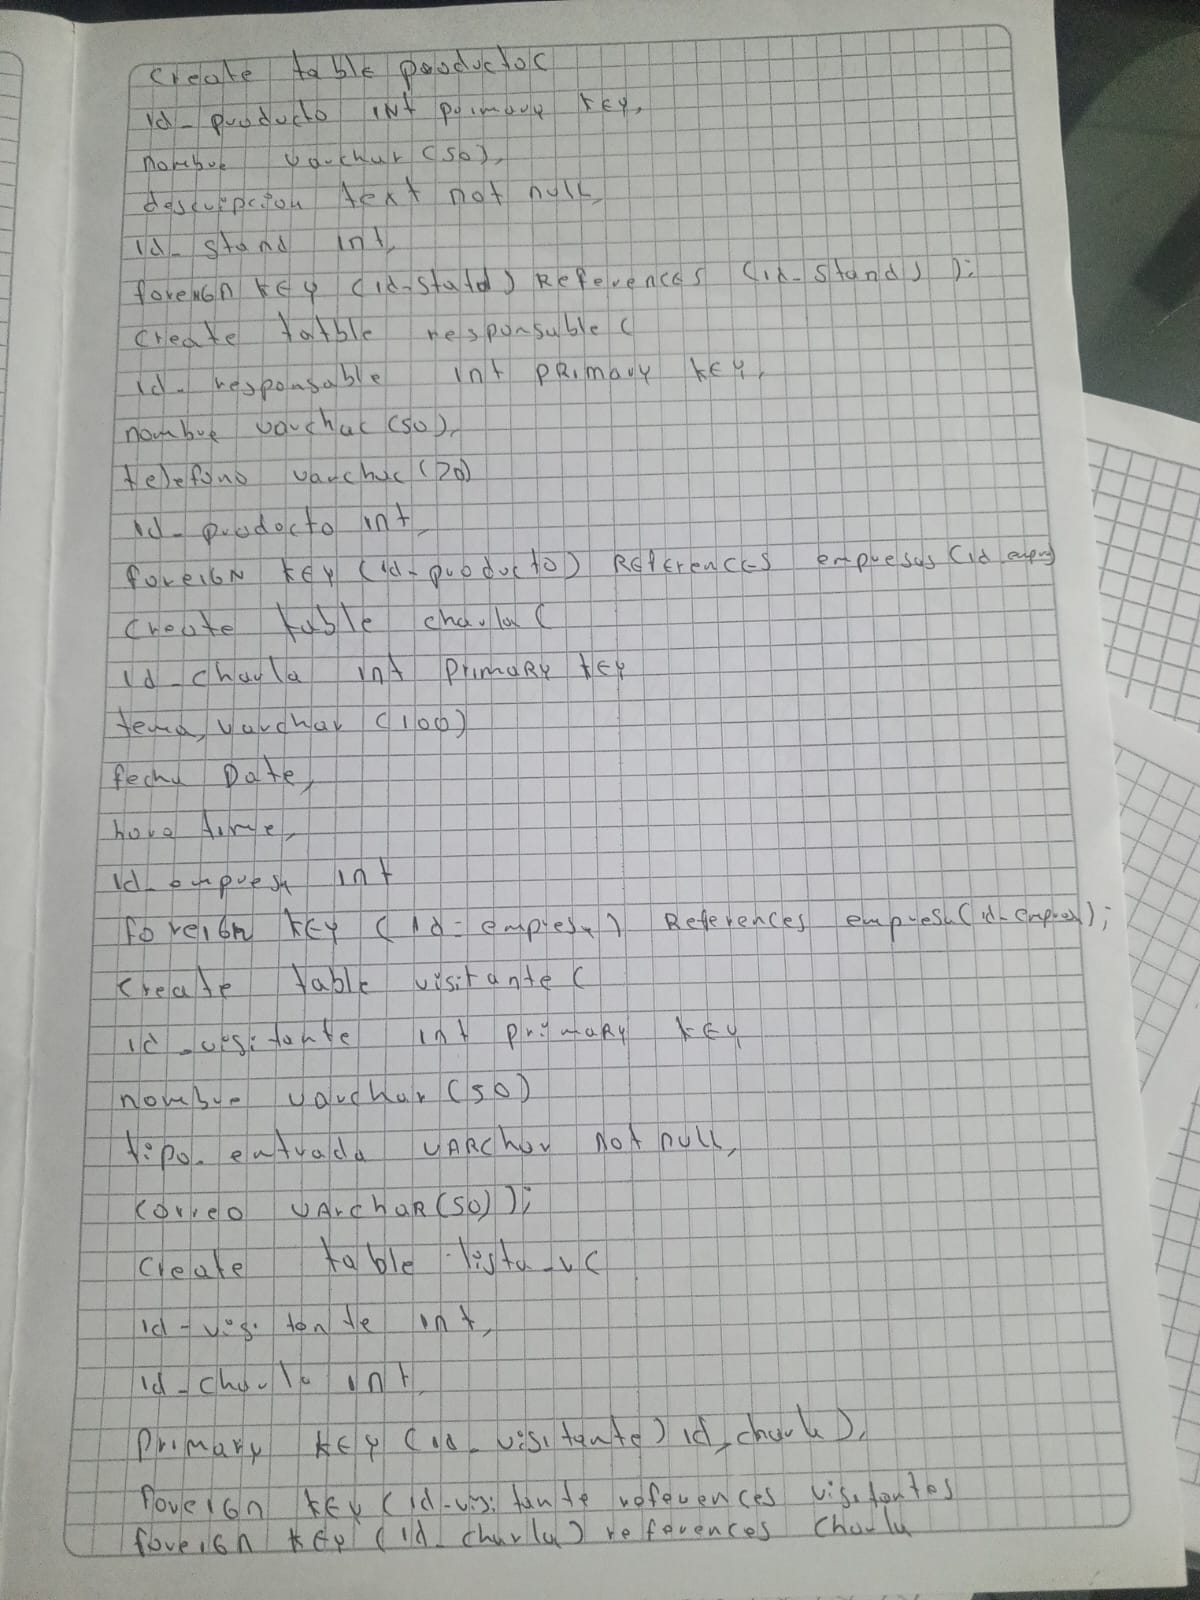 Create table productos
id_producto INT primary KEY,
nombre varchar (50),
descripcion text not null,
id_stand int,
foreiGn KEY (id-statd) References (id-stands) );
Create tatble responsable (
id_responsable int PRimary KEY,
nombre varchar (50),
telefono varchar (20)
id_producto int,
foreiGN KEY (id-producto) REferencES empresas (id_empre)
Create table charla (
id_charla int PrimaRy KEY
tema, varchar (100)
fecha Date,
hora time,
id_empresa int
foreiGn KEY (id=empresa) References empresa (id-empresa);
Create table visitante (
id_visitante int primaRy KEY,
nombre varchar (50)
tipo_entrada VARChar not null,
correo VArchaR(50));
Create table lista_v (
id-visitante int,
id_charla int,
Primary KEY (id_visitante) id_charla),
foreign KEY (id-visitante references visitantes
foreiGn KEY (id_charla) references Charla